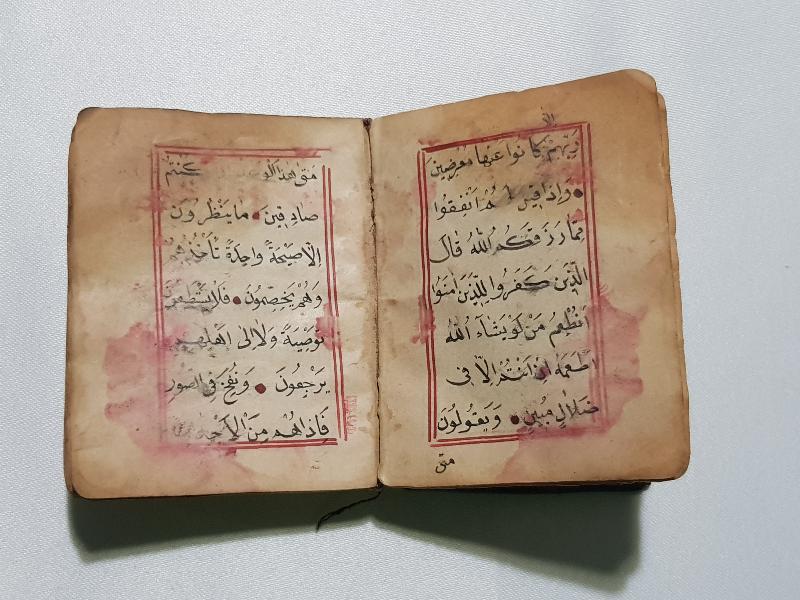 ربهم كانوا عنها معرضين
وَاِذَا قِيلَ لَهُمْ اَنْفِقُوا
مِمَّا رَزَقَكُمُ اللّٰهُ قَالَ
الَّذِينَ كَفَرُوا لِلَّذِينَ اٰمَنُوا
اَنُطْعِمُ مَنْ لَوْ يَشَاءُ اللّٰهُ
اَطْعَمَهُ اِنْ اَنْتُمْ اِلَّا فِى
ضَلَالٍ مُبِينٍ وَيَقُولُونَ
متى
مَتٰى هٰذَا كُنْتُمْ
صَادِقِينَ مَا يَنْظُرُونَ
اِلَّا صَيْحَةً وَاحِدَةً تَأْخُذُهُمْ
وَهُمْ يَخِصِّمُونَ فَلَا يَسْتَطِيعُونَ
تَوْصِيَةً وَلَا اِلٰى اَهْلِهِمْ
يَرْجِعُونَ وَنُفِخَ فِى الصُّورِ
فَاِذَا هُمْ مِنَ